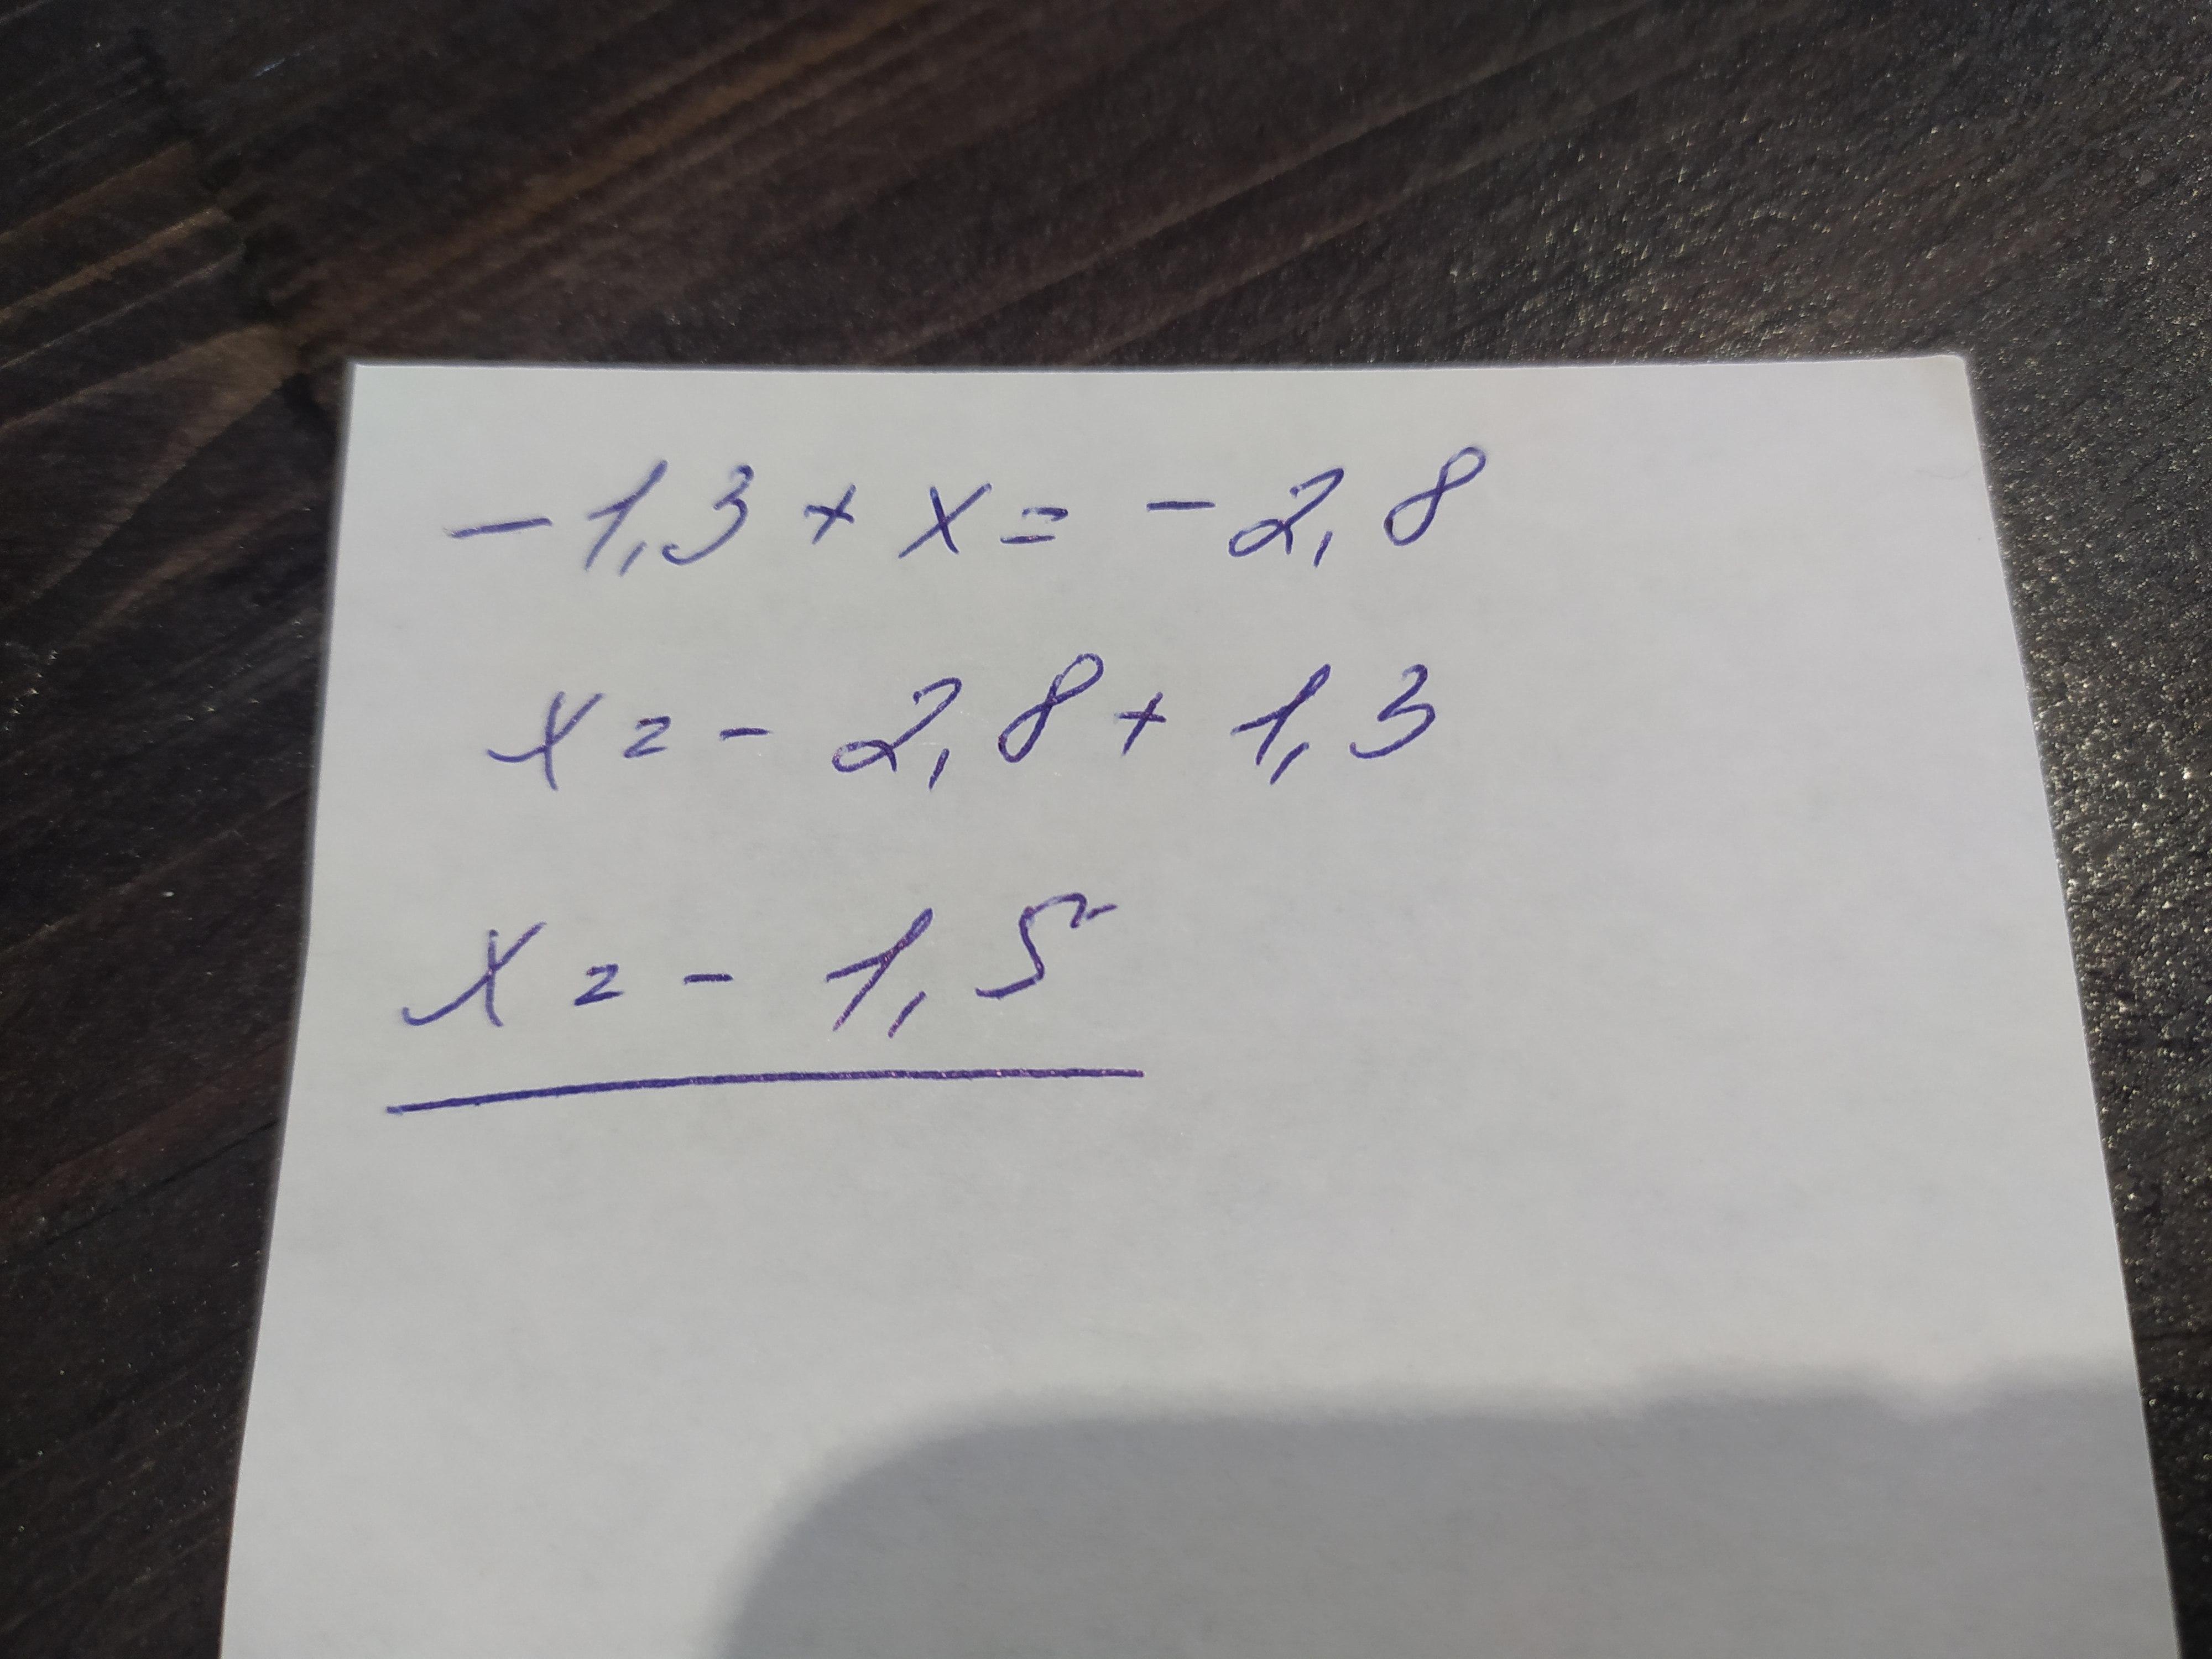 -1,3 + x = -2,8
x = - 2,8 + 1,3
x = - 1,5